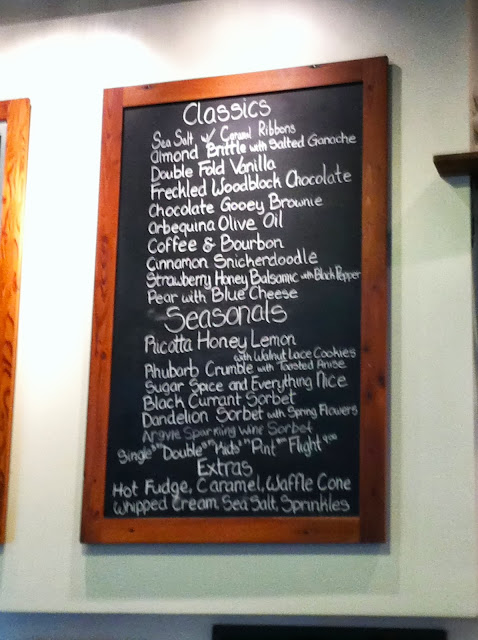 Classics
Sea Salt w/ Caramel Ribbons
Almond Brittle with Salted Ganache
Double Fold Vanilla
Freckled Woodblock Chocolate
Chocolate Gooey Brownie
Arbequina Olive Oil
Coffee & Bourbon
Cinnamon Snickerdoodle
Strawberry Honey Balsamic with Black Pepper
Pear with Blue Cheese
Seasonals
Ricotta Honey Lemon
with Walnut Lace Cookies
Rhubarb Crumble with Toasted Anise
Sugar Spice and Everything Nice
Black Currant Sorbet
Dandelion Sorbet with Spring Flowers
Argyle Sparkling Wine Sorbet
Single Double Kids Pint Flight
Extras
Hot Fudge, Caramel, Waffle Cone
Whipped Cream Sea Salt, Sprinkles